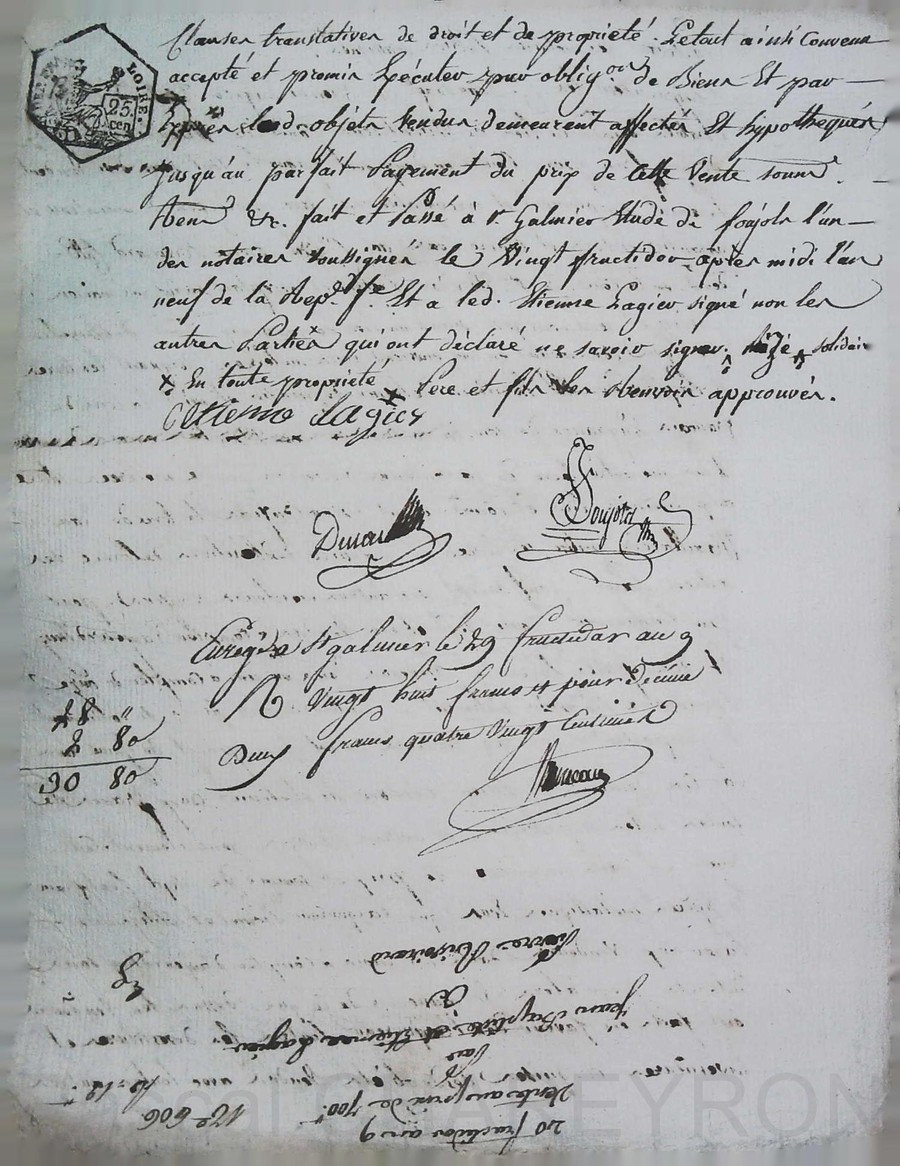 Clauses translatives de droit et de propriété. Letout ainsi Convenu
accepté et promis Exécuter par oblig.on de Biens Et par
Exprès lesd. objets Vendus demeurent affectés Et hypothequés
Jusqu'au parfait Payement du prix de cette Vente soum.
Ren.&c. fait et Passé à St. Galmier Etude de foujols l'un
des notaires soussignés le Vingt fructidor après midi l'an
neuf de la Rep. fse Et a led. Etienne Lagier signé non les
autres Parties qui ont déclaré ne savoir signer. solidair
x En toute propriété x Pere et fils les Renvois approuvés.
Etienne Lagier
Foujols
Enregé a St galmier le 29 fructidor an 9
R Vingt huit francs et pour Decime
Deux francs quatre Vingt Centimes
28 "
2 80
30 80
LOIRE.
25.
cen
20 fructidor an 9
Vente au prix de 700
Par
Jean Baptiste et Etienne Lagier
A
Pierre
No 606
EYRON